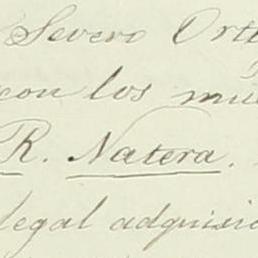 Severo Ort
con los mu
R. Natera.
legal adquisic